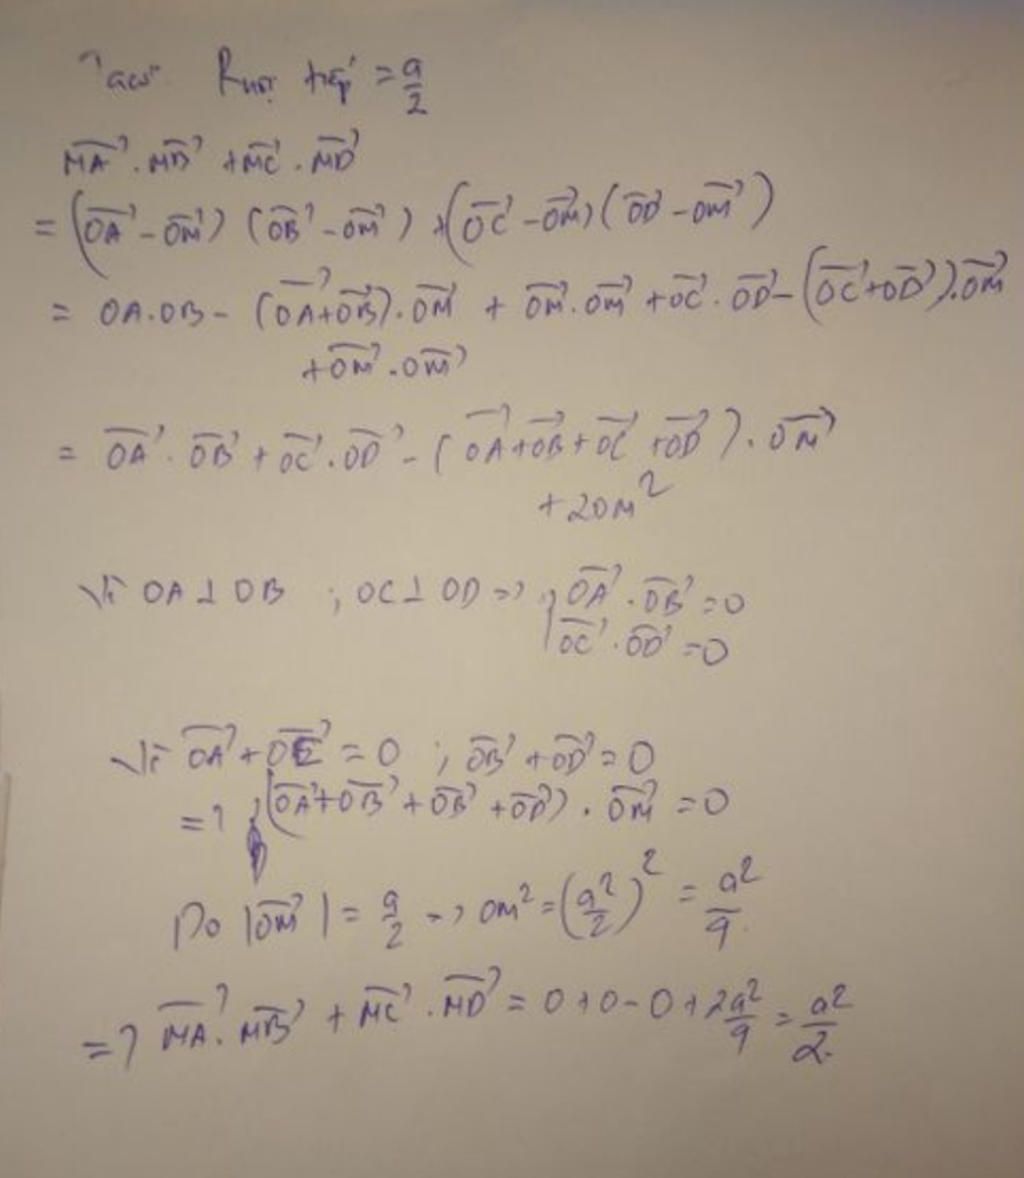 R nội tiếp = a/2
MA⃗ . MB⃗ + MC⃗ . MD⃗
= (OA⃗ - OM⃗) (OB⃗ - OM⃗) + (OC⃗ - OM⃗) (OD⃗ - OM⃗)
= OA.OB - (OA⃗+OB⃗).OM⃗ + OM⃗.OM⃗ + OC⃗ . OD⃗ - (OC⃗+OD⃗).OM⃗
+ OM⃗ . OM⃗
= OA⃗ . OB⃗ + OC⃗ . OD⃗ - (OA⃗+OB⃗+OC⃗+OD⃗) . OM⃗
+ 2OM²
Vì OA ⊥ OB ; OC ⊥ OD => { OA⃗ . OB⃗ = 0
OC⃗ . OD⃗ = 0
Vì OA⃗ + OC⃗ = 0 ; OB⃗ + OD⃗ = 0
=> (OA⃗+OB⃗+OB⃗+OD⃗) . OM⃗ = 0
Do |OM⃗| = a/2 => OM² = (a²/2)² = a²/4
=> MA⃗ . MB⃗ + MC⃗ . MD⃗ = 0 + 0 - 0 + 2a²/4 = a²/2.